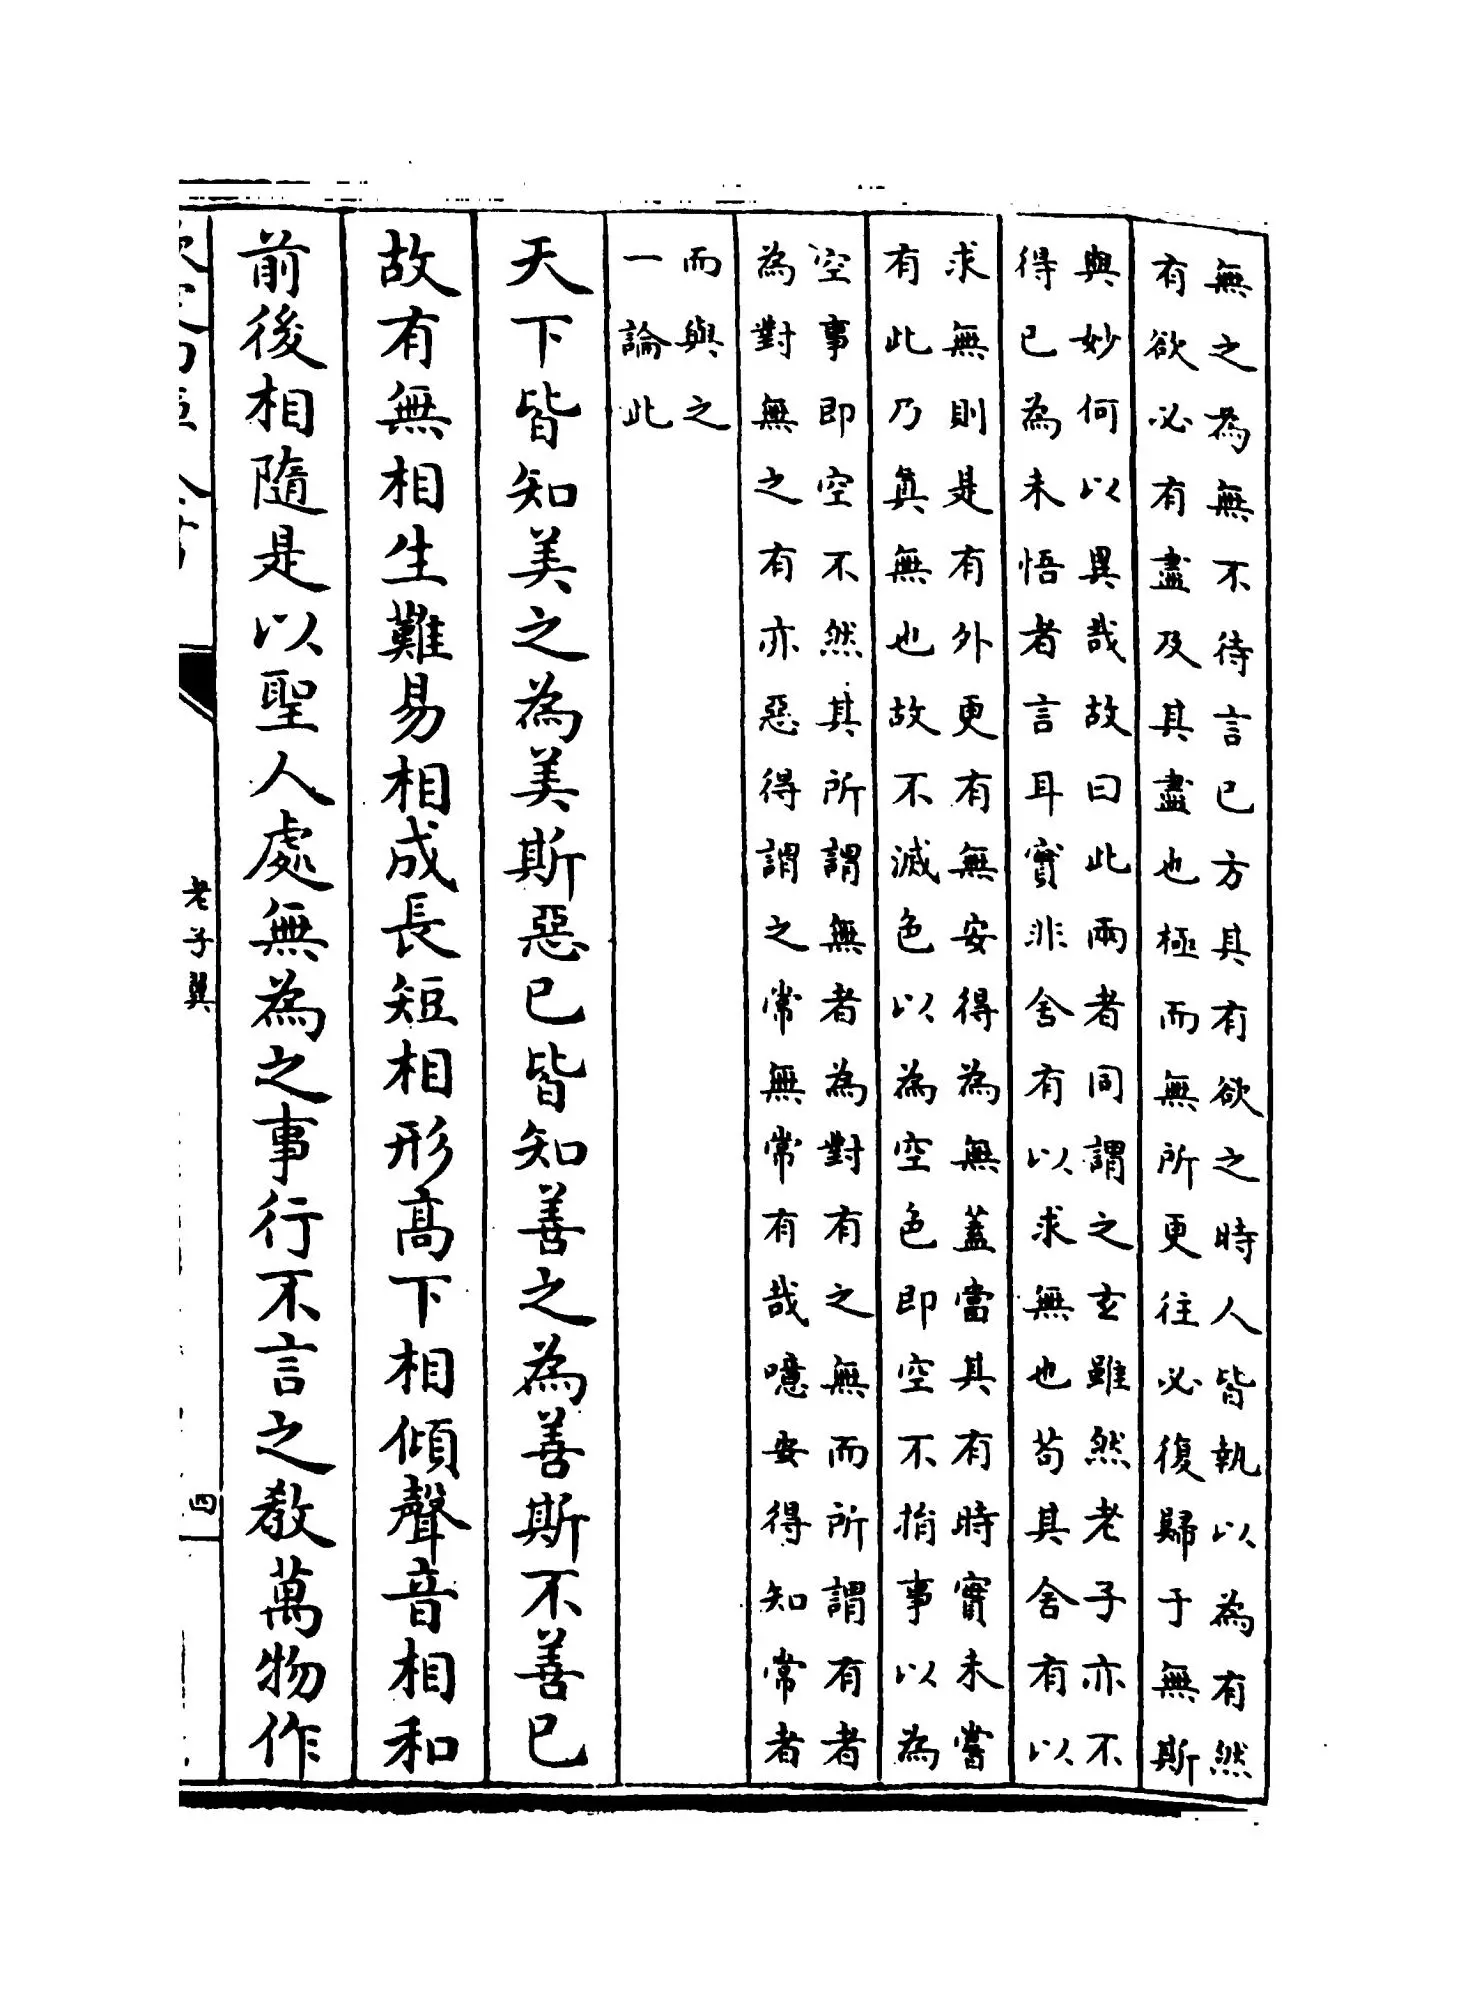 無之為無不待言已方其有欲之時人皆執以為有然
有欲必有盡及其盡也極而無所更往必復歸于無斯
與妙何以異哉故曰此兩者同謂之玄雖然老子亦不
得已為未悟者言耳實非舍有以求無也苟其舍有以
求無則是有外更有無安得為無蓋當其有時實未嘗
有此乃真無也故不滅色以為空色即空不捐事以為
空事即空不然其所謂無者為對有之無而所謂有者
為對無之有亦惡得謂之常無常有哉噫安得知常者
而與之
一論此
天下皆知美之為美斯惡已皆知善之為善斯不善已
故有無相生難易相成長短相形高下相傾聲音相和
前後相隨是以聖人處無為之事行不言之教萬物作
老子翼
四